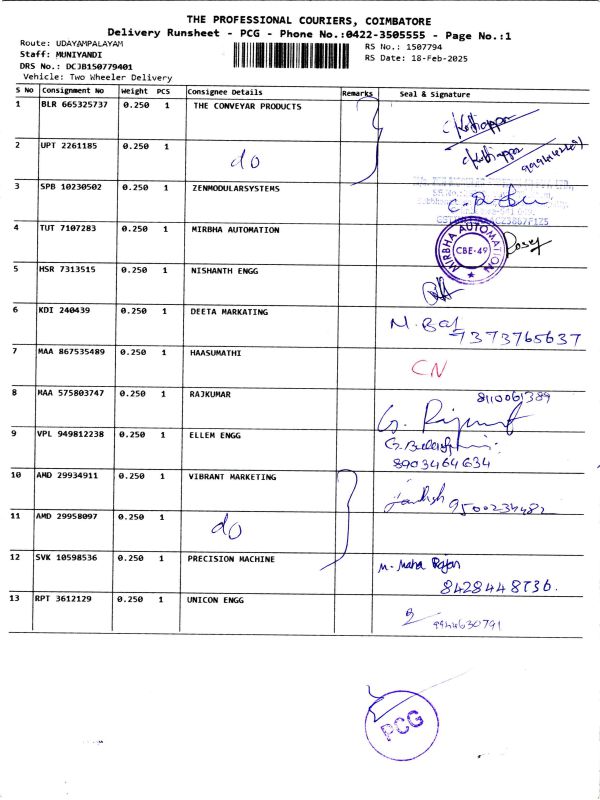 THE PROFESSIONAL COURIERS, COIMBATORE
Delivery Runsheet - PCG - Phone No.:0422-3505555 - Page No.:1
Route: UDAYAMPALAYAM
Staff: MUNIYANDI
DRS No.: DCJB150779401
Vehicle: Two Wheeler Delivery
RS No.: 1507794
RS Date: 18-Feb-2025
S No Consignment No Weight PCS Consignee Details Remarks Seal & Signature
1 BLR 665325737 0.250 1 THE CONVEYAR PRODUCTS
2 UPT 2261185 0.250 1 do
3 SPB 10230502 0.250 1 ZENMODULARSYSTEMS
4 TUT 7107283 0.250 1 MIRBHA AUTOMATION MIRBHA AUTOMATION CBE-49
5 HSR 7313515 0.250 1 NISHANTH ENGG
6 KDI 240439 0.250 1 DEETA MARKATING M. Bal 7373765637
7 MAA 867535489 0.250 1 HAASUMATHI CN
8 MAA 575803747 0.250 1 RAJKUMAR 8110061389
9 VPL 949812238 0.250 1 ELLEM ENGG 8903464634
10 AMD 29934911 0.250 1 VIBRANT MARKETING 9500234482
11 AMD 29958097 0.250 1 do
12 SVK 10598536 0.250 1 PRECISION MACHINE M. Maha Rajan 8428448736.
13 RPT 3612129 0.250 1 UNICON ENGG 9944630791
PCG